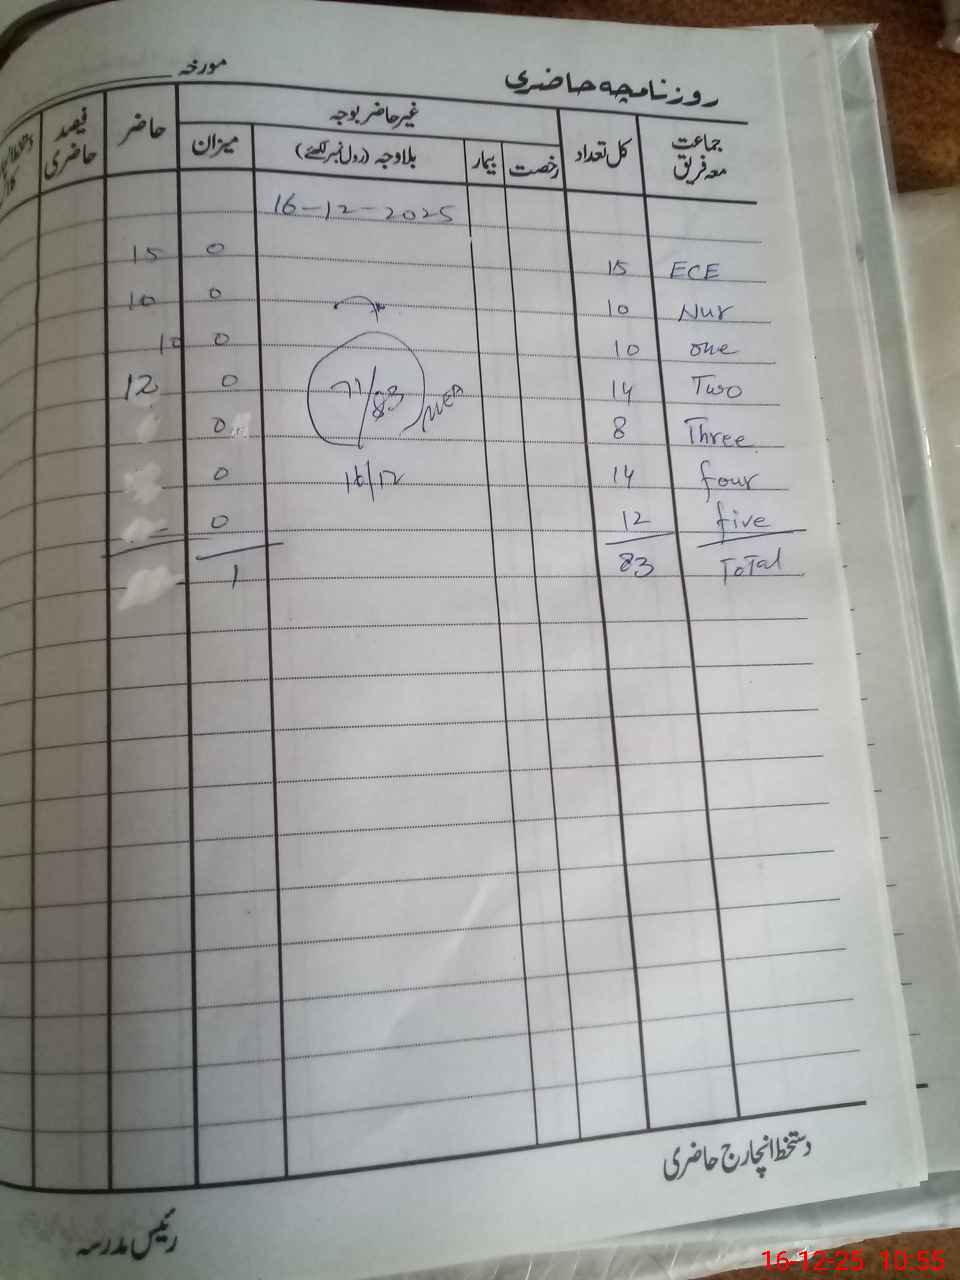 روزنامچہ حاضری
مورخہ
جماعت معہ فریق
کل تعداد
غیر حاضر بوجہ
رخصت
بیمار
بلاوجہ (رول نمبر لکھئے)
میزان
حاضر
فیصد حاضری
16-12-2025
ECE 15 0 15
Nur 10 0 10
one 10 0 10
Two 14 0 12
Three 8 0
four 14 0
five 12 0
ToTal 83 1
71/83
16/12
دستخط انچارج حاضری
رئیس مدرسہ
16-12-25 10:55